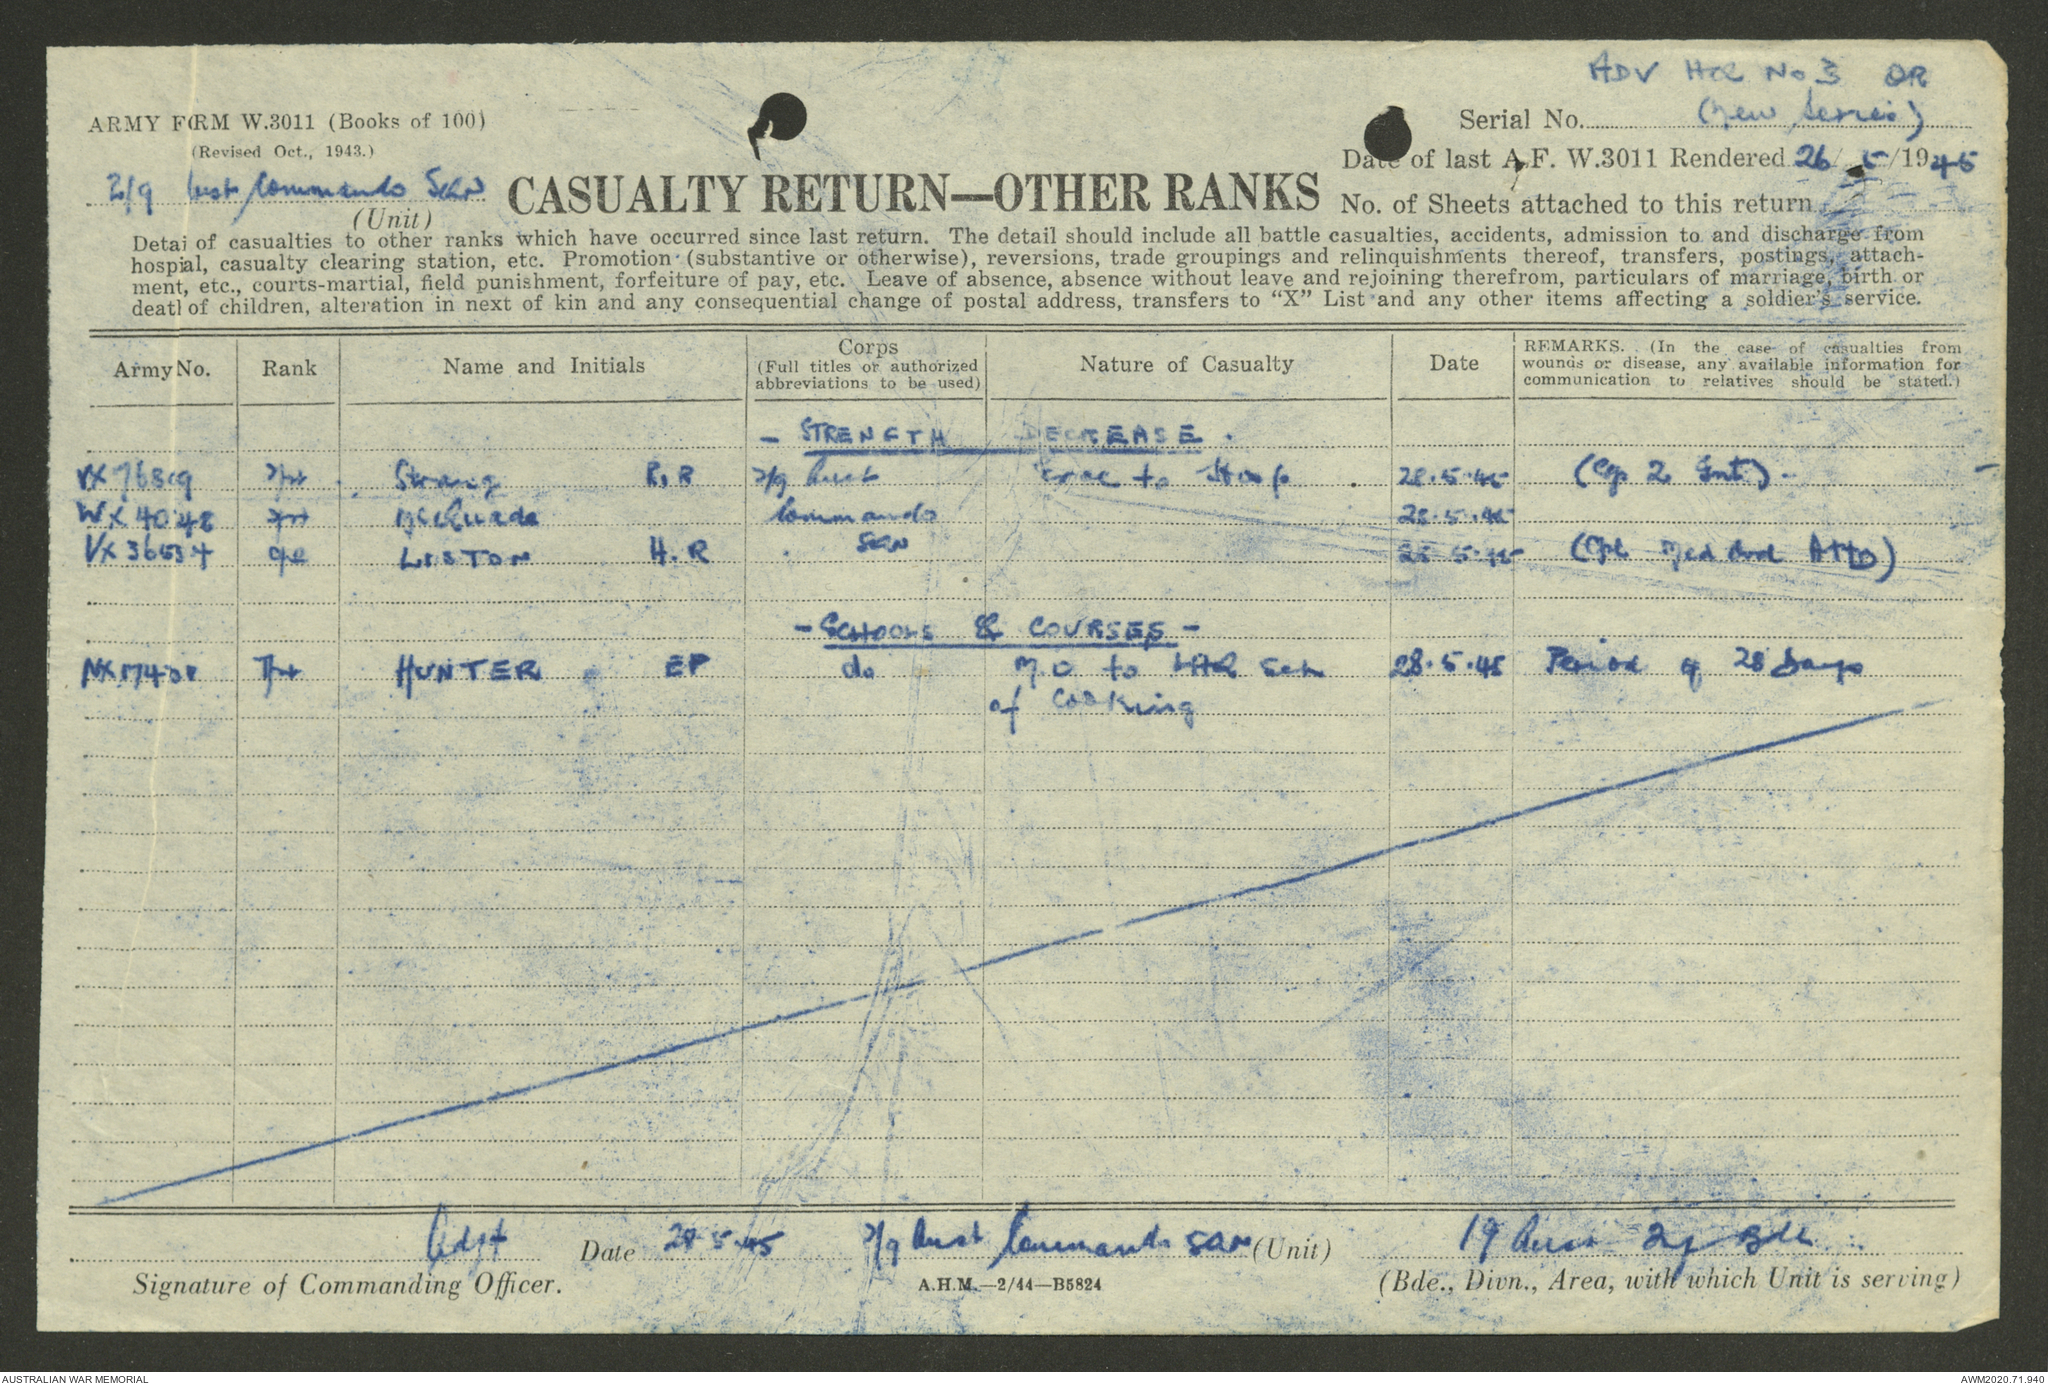 ADV HQ No 3 OR
ARMY FORM W.3011 (Books of 100)
Serial No. (New Series)
(Revised Oct., 1943.)
Date of last A.F. W.3011 Rendered 26/5/1945
2/9 Aust Commando SQN
(Unit)
CASUALTY RETURN—OTHER RANKS
No. of Sheets attached to this return
Detai of casualties to other ranks which have occurred since last return. The detail should include all battle casualties, accidents, admission to and discharge from
hospial, casualty clearing station, etc. Promotion (substantive or otherwise), reversions, trade groupings and relinquishments thereof, transfers, postings, attach-
ment, etc., courts-martial, field punishment, forfeiture of pay, etc. Leave of absence, absence without leave and rejoining therefrom, particulars of marriage, birth or
deatl of children, alteration in next of kin and any consequential change of postal address, transfers to "X" List and any other items affecting a soldier's service.
Army No. Rank Name and Initials Corps (Full titles or authorized abbreviations to be used) Nature of Casualty Date REMARKS. (In the case of casualties from wounds or disease, any available information for communication to relatives should be stated.)
- STRENGTH DECREASE.
Tpr Strang R.R 2/9 Aust Evac to Hosp 28.5.45
WX 4048 Tpr Commando 28.5.45
VX36534 LISTON H.R SQN 28.5.45
- SCHOOLS & COURSES -
Tpr HUNTER EP do M.O to Sch 28.5.45 Period of 28 Days
of Cooking
Adjt Date 28.5.45 2/9 Aust Commando SQN (Unit) 19 Aust Inf Bde
Signature of Commanding Officer.
A.H.M.—2/44—B5824
(Bde., Divn., Area, with which Unit is serving)
AUSTRALIAN WAR MEMORIAL
AWM2020.71.940